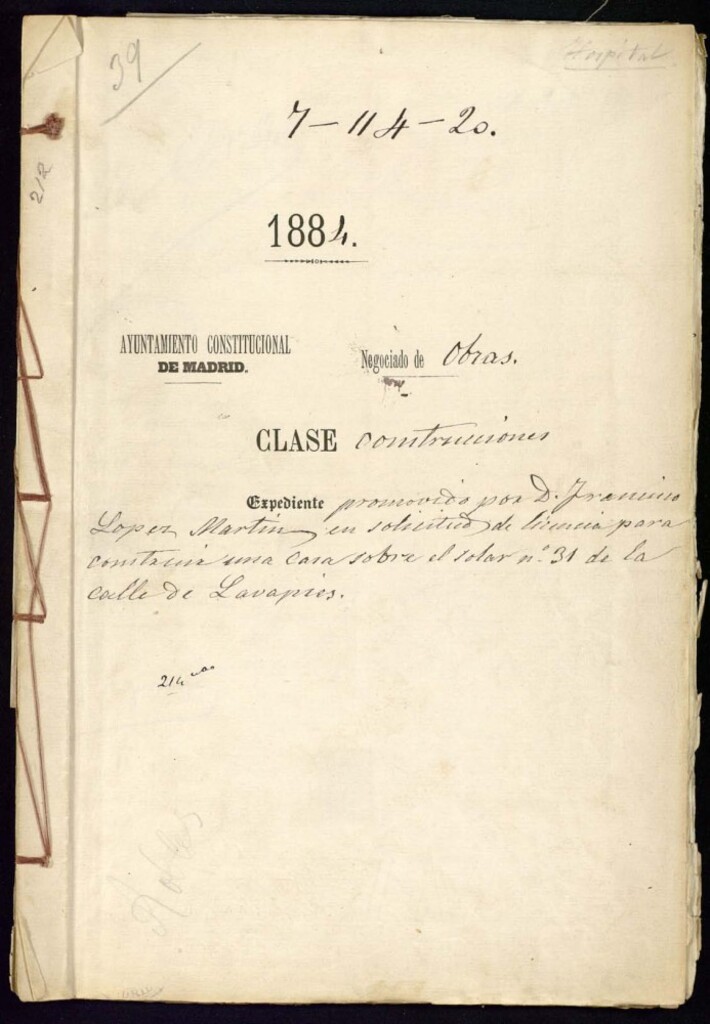 39
Hospital
7-114-20.
212
1884.
AYUNTAMIENTO CONSTITUCIONAL
DE MADRID.
Negociado de Obras.
CLASE Construciones
Expediente promovido por D. Francisco
Lopez Martin en solicitud de licencia para
construir una casa sobre el solar n.º 31 de la
calle de Lavapies.
214